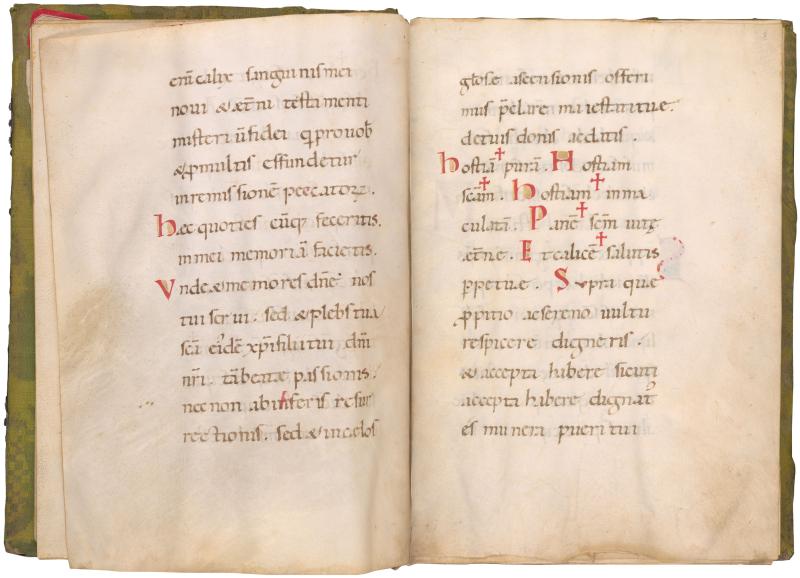 eni calix sanguinis mei
noui & et̄ni testamenti
misterium fidei q̄ pro uob̄
& ꝓ multis effundetur
in remissionē peccatoꝝ.
Hec quoties cūq; feceritis.
in mei memoriā facietis.
Unde & memores dn̄e nos
tui serui. sed & plebs tua
sc̄a eiusdē xp̄i filii tui dn̄i
nr̄i. tā beatæ passionis.
nec non ab inferis resur
rectionis. sed & in celos
glosæ ascensionis offeri
mus p̄clare maiestati tuæ.
de tuis donis ac datis.
hostiā ✝ purā. Hostiam
sc̄am ✝. hostiam ✝ inma
culatā. Panē ✝ sc̄m uitę
et̄ne. Et calicē ✝ salutis
ꝑpetuæ. Supra quę
ꝓpitio ac sereno uultu
respicere digneris.
& accepta habere sicuti
accepta habere dignat᾽
es munera pueri tui